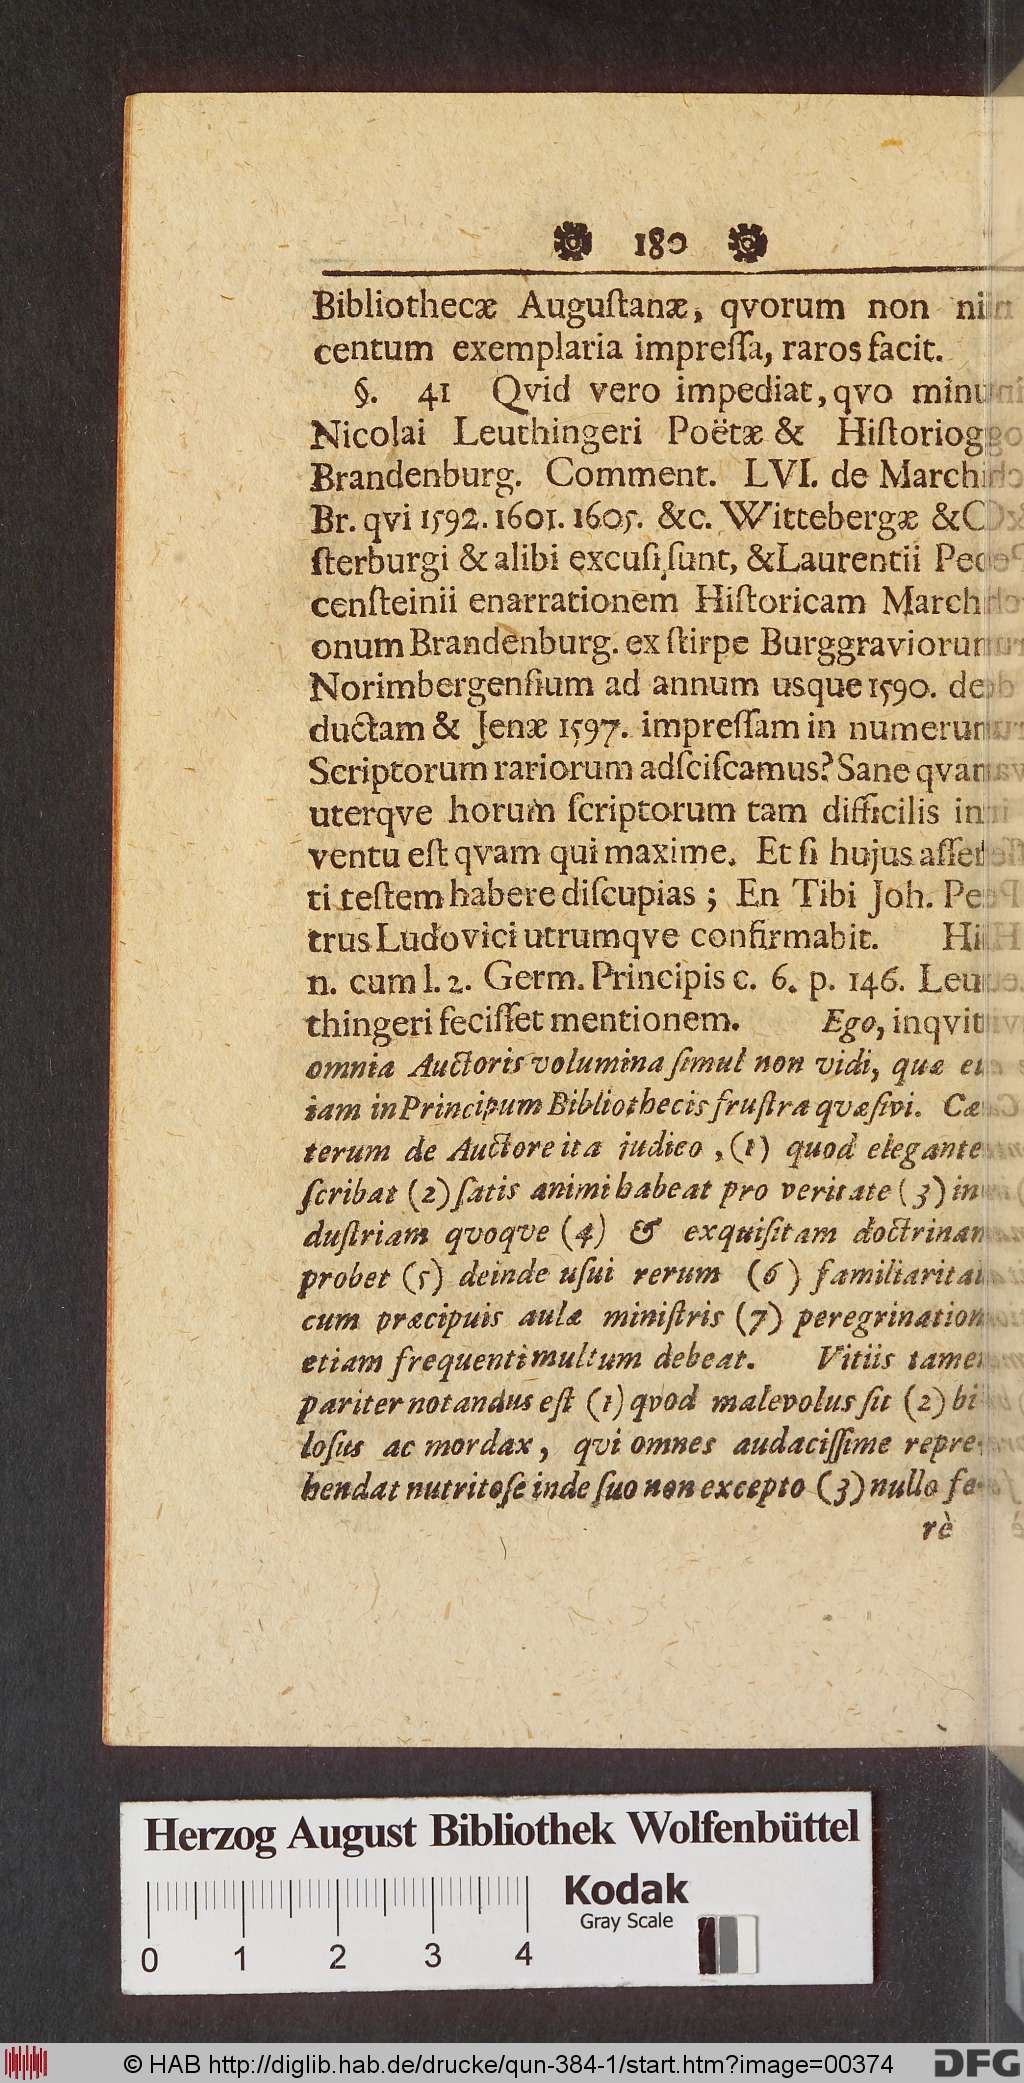 180
Bibliothecæ Auguſtanæ, qvorum non
centum exemplaria impreſſa, raros facit.
§. 41 Qvid vero impediat, qvo
Nicolai Leuthingeri Poëtæ &
Brandenburg. Comment. LVI. de
Br. qvi 1592. 1601. 1605. &c. Wittebergæ &
ſterburgi & alibi excuſi ſunt, & Laurentii
cenſteinii enarrationem Hiſtoricam March
onum Brandenburg. ex ſtirpe Burggraviorum
Norimbergenſium ad annum usque 1590. de
ductam & Jenæ 1597. impreſſam in numerum
Scriptorum rariorum adſciſcamus? Sane qvam
uterqve horum ſcriptorum tam difficilis in
ventu eſt qvam qui maxime. Et ſi hujus aſſer
ti teſtem habere diſcupias; En Tibi Joh. Pe
trus Ludovici utrumqve confirmabit. Hi
n. cum l. 2. Germ. Principis c. 6. p. 146. Leu
thingeri feciſſet mentionem. Ego, inqvit
omnia Auctoris volumina ſimul non vidi, quæ et
iam in Principum Bibliothecis fruſtra quæſivi. Cæ
terum de Auctore ita judico, (1) quod elegante
ſcribat (2) ſatis animi habeat pro veritate (3) in
duſtriam quoqve (4) & exquiſitam doctrinam
probet (5) deinde uſui rerum (6) familiaritati
cum præcipuis aulæ miniſtris (7) peregrination
etiam frequenti multum debeat. Vitiis tamen
pariter notandus eſt (1) qvod malevolus ſit (2) bi
loſus ac mordax, qvi omnes audaciſſime repre-
hendat nutritoſe inde ſuo non excepto (3) nullo fe-
rè
Herzog August Bibliothek Wolfenbüttel
Kodak
Gray Scale
0 1 2 3 4
© HAB http://diglib.hab.de/drucke/qun-384-1/start.htm?image=00374
DFG